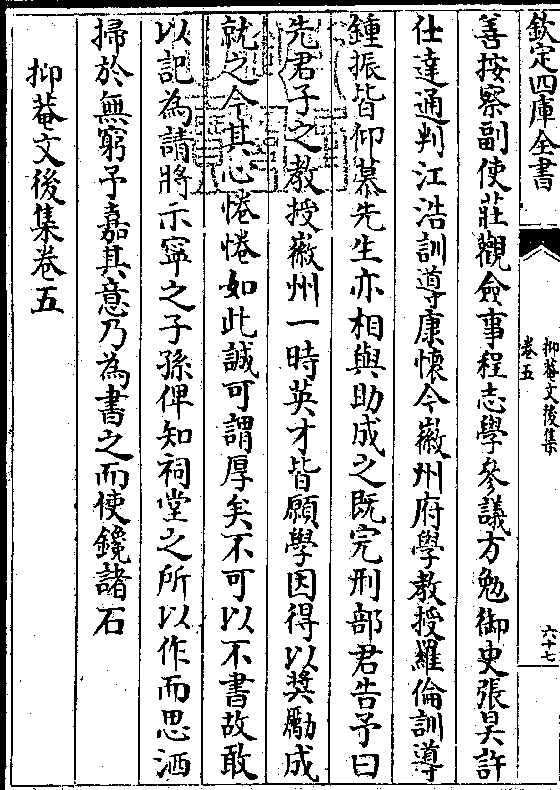 欽定四庫全書
抑菴文後集
卷五
六十七
善按察副使莊觀僉事程志學參議方勉御史張昊許
仕達通判江浩訓導康懷今徽州府學教授羅倫訓導
鍾振皆仰慕先生亦相與助成之既完刑部君告予曰
先君子之教授徽州一時英才皆願學因得以奬勵成
就之今其心惓惓如此誠可謂厚矣不可以不書故敢
以記為請將示寧之子孫俾知祠堂之所以作而思洒
掃於無窮予嘉其意乃為書之而使鑱諸石
抑菴文後集卷五